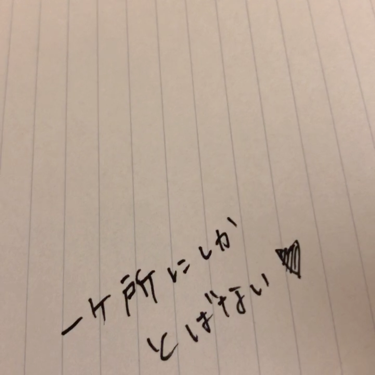 一ヶ所にしか
とばない♥